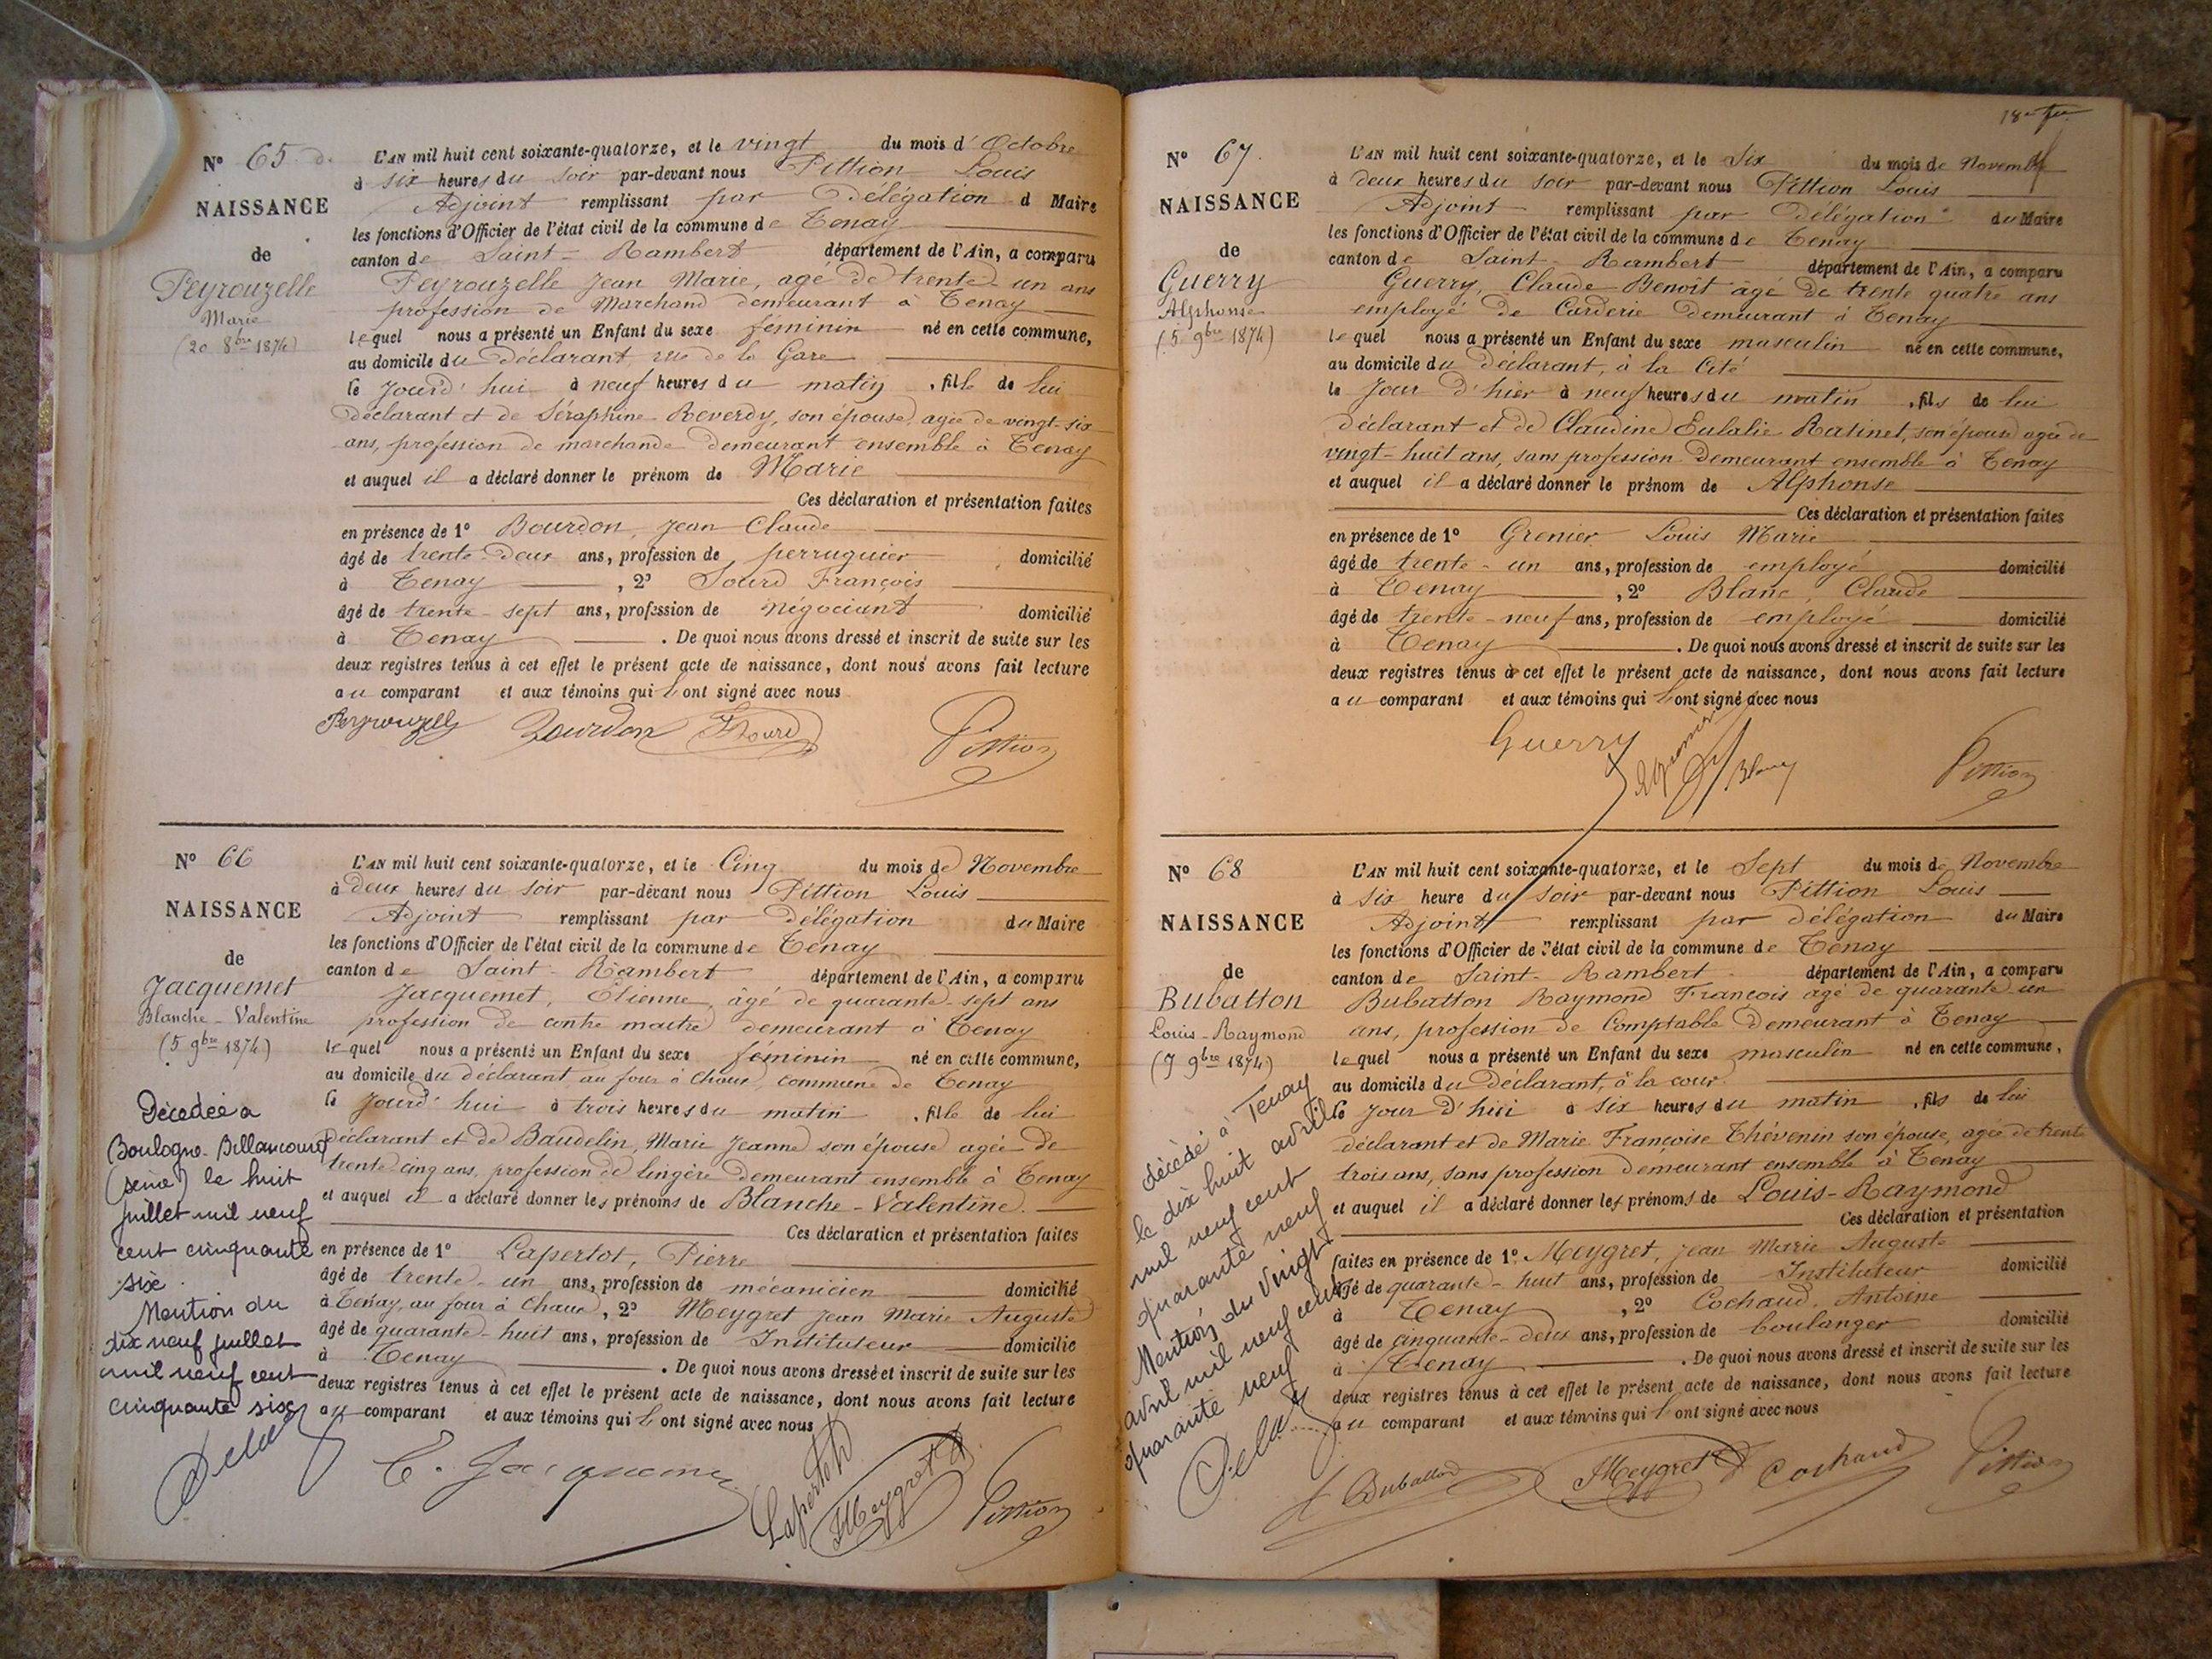 Nº 65
NAISSANCE
de
Peyrouzelle
Marie
(20 8bre 1874)
L'AN mil huit cent soixante-quatorze, et le vingt du mois d'Octobre
à six heures du soir par-devant nous Pittion Louis
Adjoint remplissant par Délégation d Maire
les fonctions d'Officier de l'état civil de la commune de Tenay
canton de Saint-Rambert département de l'Ain, a comparu
Peyrouzelle Jean Marie, agé de trente-un ans
profession de Marchand demeurant à Tenay
lequel nous a présenté un Enfant du sexe féminin né en cette commune,
au domicile du Déclarant, rue de la Gare
le jourd'hui à neuf heures du matin, fille de lui
déclarant et de Séraphine Reverdy, son épouse, agée de vingt-six
ans, profession de marchande demeurant ensemble à Tenay
et auquel il a déclaré donner le prénom de Marie
Ces déclaration et présentation faites
en présence de 1º Bourdon, Jean Claude
âgé de trente-deux ans, profession de perruquier domicilié
à Tenay, 2º Sourd François
âgé de trente-sept ans, profession de négociant domicilié
à Tenay. De quoi nous avons dressé et inscrit de suite sur les
deux registres tenus à cet effet le présent acte de naissance, dont nous avons fait lecture
au comparant et aux témoins qui l'ont signé avec nous
Peyrouzelle Bourdon Fsourd Pittion
Nº 66
NAISSANCE
de
Jacquemet
Blanche-Valentine
(5 9bre 1874)
Décédée à
Boulogne-Billancourt
(seine) le huit
juillet mil neuf
cent cinquante
six.
Mention du
dix neuf juillet
mil neuf cent
cinquante six
L'AN mil huit cent soixante-quatorze, et le Cinq du mois de Novembre
à deux heures du soir par-devant nous Pittion Louis
Adjoint remplissant par délégation du Maire
les fonctions d'Officier de l'état civil de la commune de Tenay
canton de Saint-Rambert département de l'Ain, a comparu
Jacquemet, Etienne, âgé de quarante-sept ans
profession de contre maitre demeurant à Tenay
lequel nous a présenté un Enfant du sexe féminin né en cette commune,
au domicile du déclarant, au four à chaux, commune de Tenay
le jourd'hui à trois heures du matin, fille de lui
déclarant et de Baudelin, Marie Jeanne son épouse agée de
trente cinq ans, profession de lingère demeurant ensemble à Tenay
et auquel il a déclaré donner les prénoms de Blanche-Valentine.
Ces déclaration et présentation faites
en présence de 1º Lapertot, Pierre
âgé de trente-un ans, profession de mécanicien domicilié
à Tenay, au four à chaux, 2º Meygret Jean Marie Auguste
âgé de quarante-huit ans, profession de Instituteur domicilié
à Tenay. De quoi nous avons dressé et inscrit de suite sur les
deux registres tenus à cet effet le présent acte de naissance, dont nous avons fait lecture
au comparant et aux témoins qui l'ont signé avec nous
E. Jacquemet Lapertot Meygret Pittion
Nº 67
NAISSANCE
de
Guerry
Alphonse
(5 9bre 1874)
L'AN mil huit cent soixante-quatorze, et le Six du mois de Novembre
à deux heures du soir par-devant nous Pittion Louis
Adjoint remplissant par délégation du Maire
les fonctions d'Officier de l'état civil de la commune de Tenay
canton de Saint-Rambert département de l'Ain, a comparu
Guerry, Claude Benoît agé de trente quatre ans
employé de Carderie demeurant à Tenay
lequel nous a présenté un Enfant du sexe masculin né en cette commune,
au domicile du déclarant, à la Cité
le Jour d'hier à neuf heures du matin, fils de lui
déclarant et de Claudine Eulalie Ratinet, son épouse agée de
vingt-huit ans, sans profession demeurant ensemble à Tenay
et auquel il a déclaré donner le prénom de Alphonse
Ces déclaration et présentation faites
en présence de 1º Grenier Louis Marie
âgé de trente-un ans, profession de employé domicilié
à Tenay, 2º Blanc, Claude
âgé de trente-neuf ans, profession de employé domicilié
à Tenay. De quoi nous avons dressé et inscrit de suite sur les
deux registres tenus à cet effet le présent acte de naissance, dont nous avons fait lecture
au comparant et aux témoins qui l'ont signé avec nous
Guerry Grenier Blanc Pittion
Nº 68
NAISSANCE
de
Bubatton
Louis-Raymond
(7 9bre 1874)
décédé à Tenay
le dix huit avril
mil neuf cent
quarante neuf
Mention du vingt
avril mil neuf cent
quarante neuf
L'AN mil huit cent soixante-quatorze, et le Sept du mois de Novembre
à six heure du soir par-devant nous Pittion Louis
Adjoint remplissant par délégation du Maire
les fonctions d'Officier de l'état civil de la commune de Tenay
canton de Saint-Rambert département de l'Ain, a comparu
Bubatton Raymond François agé de quarante-un
ans, profession de Comptable demeurant à Tenay
lequel nous a présenté un Enfant du sexe masculin né en cette commune,
au domicile du Déclarant, à la cour
le jour d'hui à six heures du matin, fils de lui
déclarant et de Marie Françoise Thévenin son épouse, agée de trente
trois ans, sans profession demeurant ensemble à Tenay
et auquel il a déclaré donner les prénoms de Louis-Raymond
Ces déclaration et présentation
faites en présence de 1º Meygret, Jean Marie Auguste
âgé de quarante-huit ans, profession de Instituteur domicilié
à Tenay, 2º Cochaud, Antoine
âgé de cinquante-deux ans, profession de boulanger domicilié
à Tenay. De quoi nous avons dressé et inscrit de suite sur les
deux registres tenus à cet effet le présent acte de naissance, dont nous avons fait lecture
au comparant et aux témoins qui l'ont signé avec nous
Bubatton Meygret Cochaud Pittion